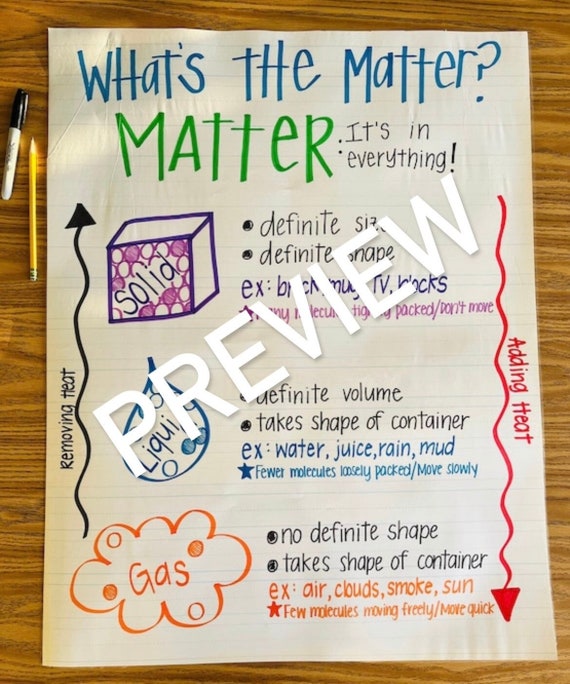 What's the Matter?
Matter: It's in everything!
Solid
• definite size
• definite shape
ex: brick, mug, TV, blocks
★ Many molecules tightly packed/Don't move
Removing Heat
Adding Heat
PREVIEW
Liquid
• definite volume
• takes shape of container
ex: water, juice, rain, mud
★ Fewer molecules loosely packed/Move slowly
Gas
• no definite shape
• takes shape of container
ex: air, clouds, smoke, sun
★ Few molecules moving freely/Move quick